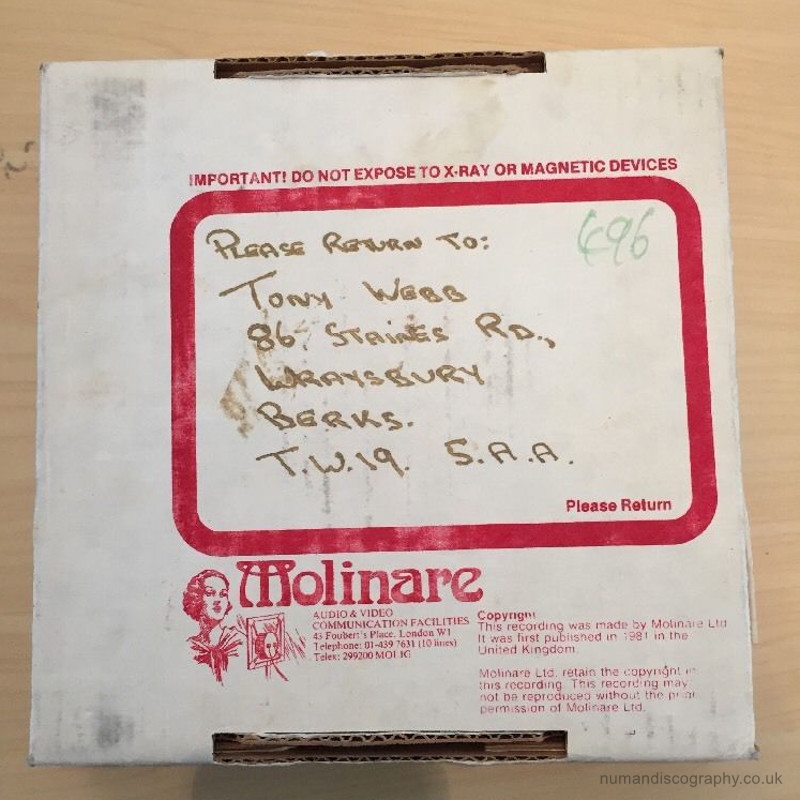 IMPORTANT! DO NOT EXPOSE TO X-RAY OR MAGNETIC DEVICES
696
PLEASE RETURN TO:
TONY WEBB
86, STAINES RD.,
WRAYSBURY
BERKS.
T.W.19. 5.A.A.
Please Return
Molinare
AUDIO & VIDEO
COMMUNICATION FACILITIES
43 Foubert's Place, London W1
Telephone: 01-439 7631 (10 lines)
Telex: 299200 MOLIG
Copyright
This recording was made by Molinare Ltd
It was first published in 1981 in the
United Kingdom.
Molinare Ltd. retain the copyright in
this recording. This recording may
not be reproduced without the prior
permission of Molinare Ltd.
numandiscography.co.uk